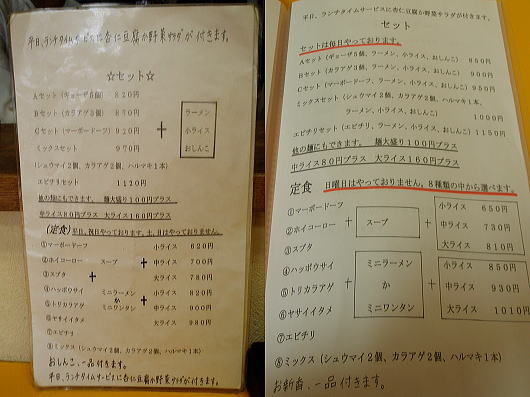 平日、ランチタイムサービスに杏仁豆腐か野菜サラダが付きます。
☆セット☆
Aセット(ギョーザ5個) 820円
Bセット(カラアゲ3個) 870円
Cセット(マーボードーフ) 920円
ミックスセット 970円
+
ラーメン
小ライス
おしんこ
(シュウマイ2個、カラアゲ2個、ハルマキ1本)
エビチリセット 1120円
他の麺にもできます。 麺大盛り100円プラス
中ライス80円プラス 大ライス160円プラス
(定食) 平日、祝日やっております。土、日はやっておりません。
①マーボードーフ
②ホイコーロー
③スブタ
④ハッポウサイ
⑤トリカラアゲ
⑥ヤサイイタメ
⑦エビチリ
+
スープ
ミニラーメン
か
ミニワンタン
+
小ライス 620円
中ライス 700円
大ライス 780円
+
小ライス 820円
中ライス 900円
大ライス 980円
⑧ミックス(シュウマイ2個、カラアゲ2個、ハルマキ1本)
おしんこ、一品付きます。
平日、ランチタイムサービスに杏仁豆腐か野菜サラダが付きます。
平日、ランチタイムサービスに杏仁豆腐か野菜サラダが付きます。
セット
セットは毎日やっております。
Aセット(ギョーザ5個、ラーメン、小ライス、おしんこ) 850円
Bセット(カラアゲ3個、ラーメン、小ライス、おしんこ) 900円
Cセット(マーボードーフ、ラーメン、小ライス、おしんこ) 950円
ミックスセット(シュウマイ2個、カラアゲ2個、ハルマキ1本、
ラーメン、小ライス、おしんこ) 1000円
エビチリセット(エビチリ、ラーメン、小ライス、おしんこ) 1150円
他の麺にもできます。麺大盛り100円プラス
中ライス80円プラス 大ライス160円プラス
定食 日曜日はやっておりません。8種類の中から選べます。
①マーボードーフ
②ホイコーロー
③スブタ
④ハッポウサイ
⑤トリカラアゲ
⑥ヤサイイタメ
⑦エビチリ
+
スープ
+
小ライス 650円
中ライス 730円
大ライス 810円
+
ミニラーメン
か
ミニワンタン
+
小ライス 850円
中ライス 930円
大ライス 1010円
⑧ミックス(シュウマイ2個、カラアゲ2個、ハルマキ1本)
お新香、一品付きます。